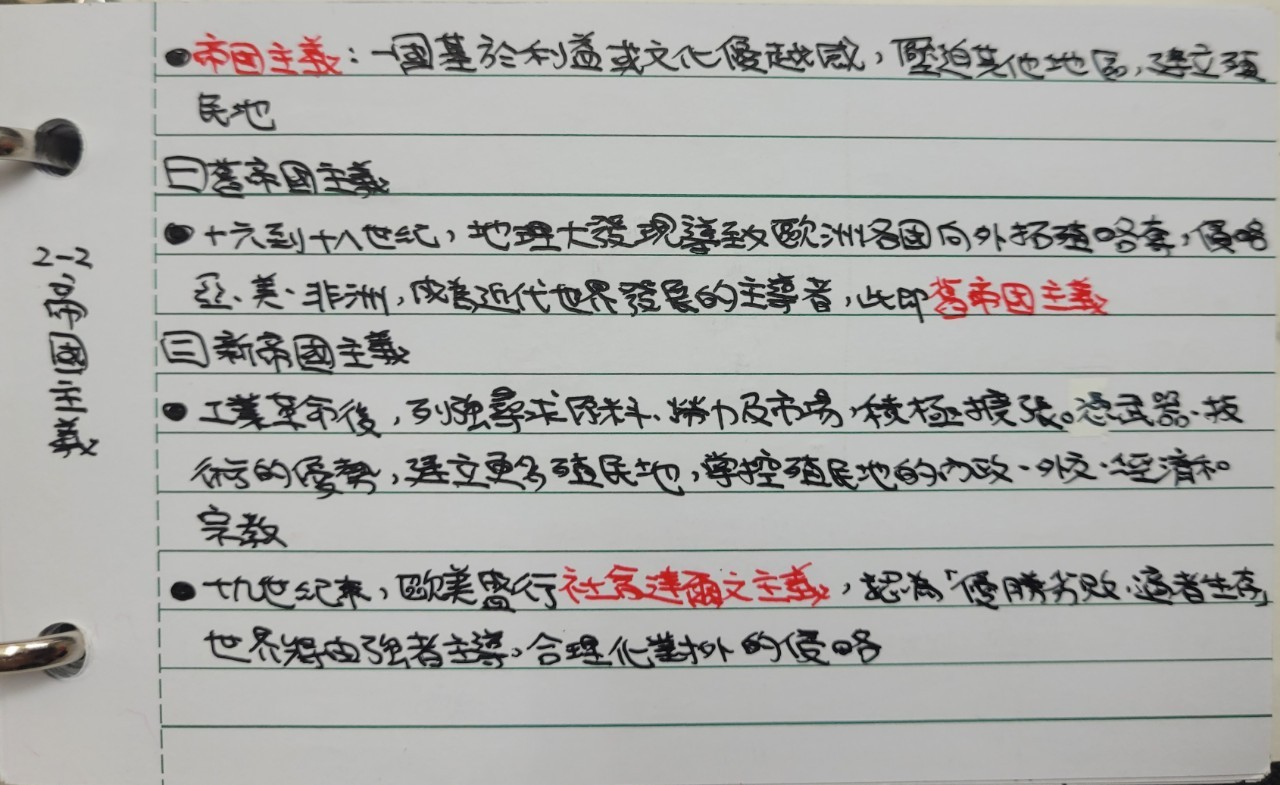 2-2
帝國主義
●帝国主義:一國基於利益或文化優越感,壓迫其他地區,建立殖
民地
㊀舊帝國主義
●十六到十八世紀,地理大發現導致歐洲各國向外拓殖略奪,侵略
亞、美、非洲,成為近代世界發展的主導者,此即舊帝國主義
㊁新帝國主義
●工業革命後,列強尋求原料、勞力及市場,積極擴張。憑武器、技
術的優勢,建立更多殖民地,掌控殖民地的內政、外交、經濟和
宗教
●十九世紀末,歐美盛行社會達爾文主義,認為「優勝劣敗、適者生存
世界將由強者主導,合理化對外的侵略